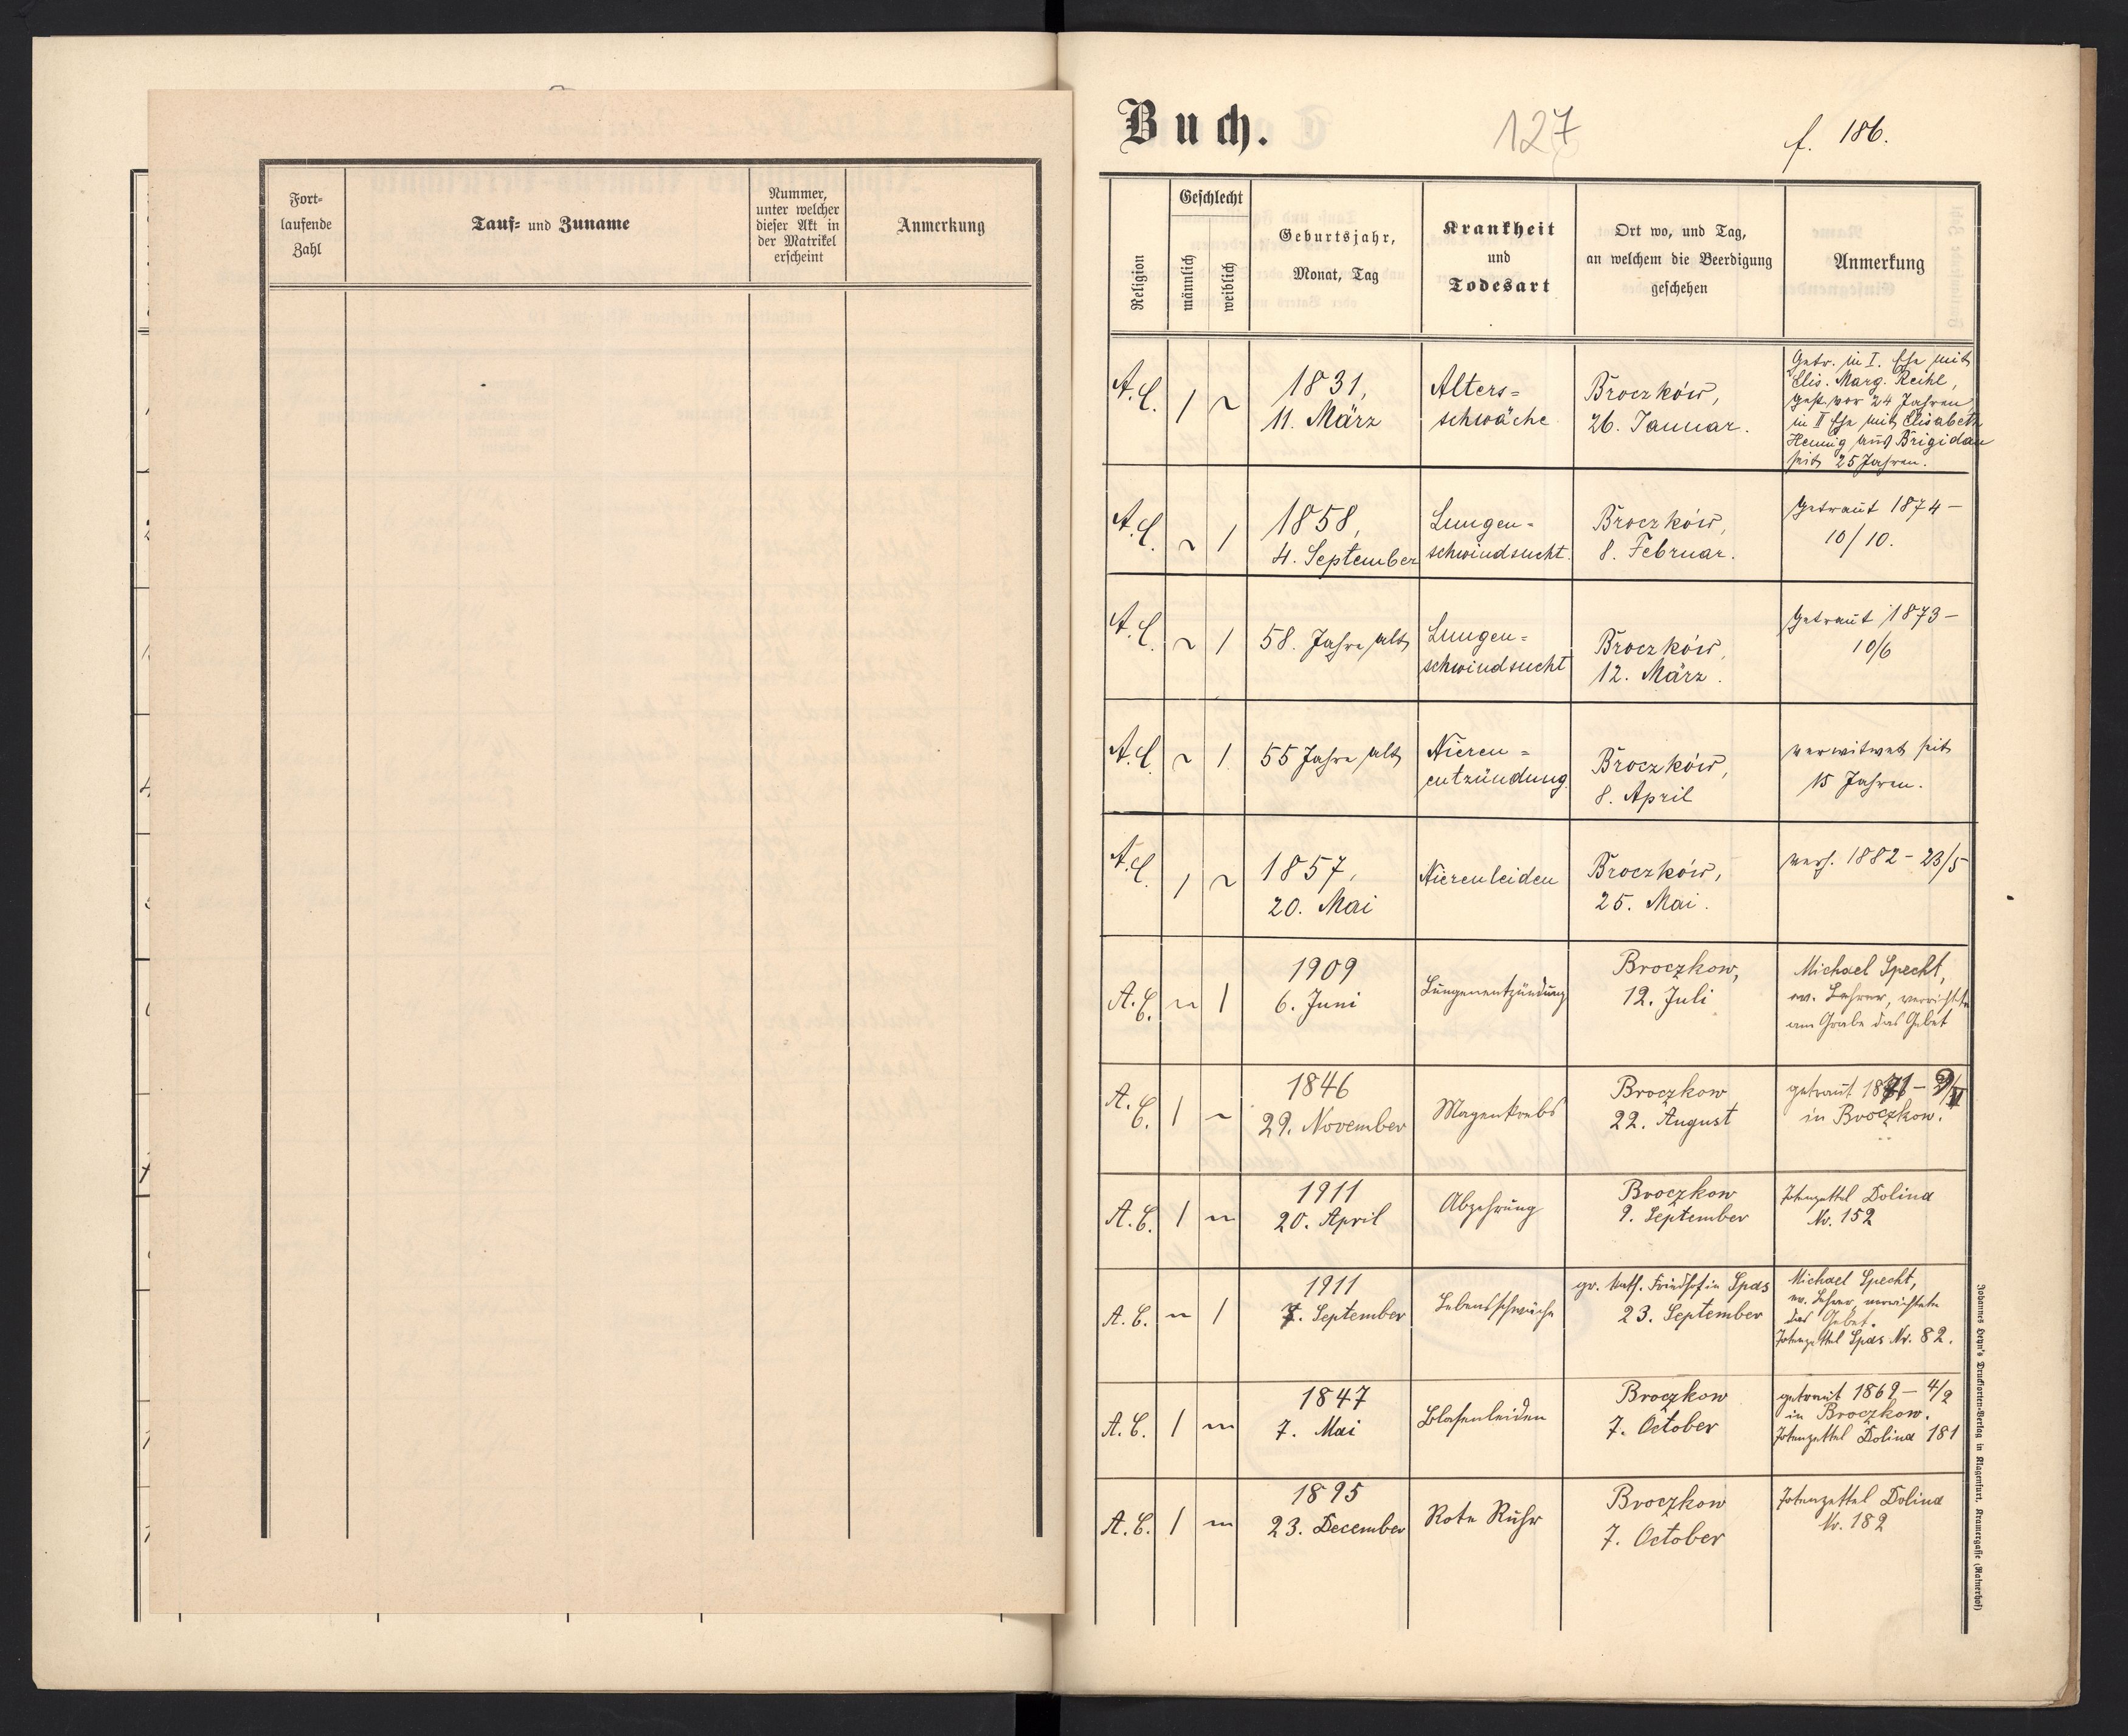 Fort-
laufende
Zahl
Tauf- und Zuname
Nummer,
unter welcher
dieser Akt in
der Matrikel
erscheint
Anmerkung
Buch.
127
f. 186.
Religion
Geschlecht
männlich
weiblich
Geburtsjahr,
Monat, Tag
Krankheit
und
Todesart
Ort wo, und Tag,
an welchem die Beerdigung
geschehen
Anmerkung
A.C. 1 ~
1831,
11. März
Alters=
schwäche
Broczków,
26. Januar.
Getr. in I. Ehe mit
Elis. Marg. Reihl,
gest. vor 24 Jahren
in II Ehe mit Elisabeth
Hennig aus Brigidau
seit 25 Jahren.
A.C. ~ 1
1858,
4. September
Lungen=
schwindsucht.
Broczków,
8. Februar.
Getraut 1874 –
10/10.
A.C. ~ 1
58. Jahre alt
Lungen=
schwindsucht
Broczków,
12. März.
Getraut 1873 –
10/6
A.C. ~ 1.
55 Jahre alt
Nieren=
entzündung.
Broczków,
8. April
verwitwet seit
15 Jahren.
A.C. 1 ~
1857,
20. Mai
Nierenleiden
Broczków,
25. Mai.
verh. 1882 – 23/5
A.C. ~ 1
1909
6. Juni
Lungenentzündung
Broczkow,
12. Juli
Michael Specht,
ev. Lehrer, verrichtete
am Grabe das Gebet
A.C. 1 ~
1846
29. November
Magenkrebs
Broczkow
22. August
getraut 1871 –
in Broczkow.
A.C. 1 ~
1911
20. April
Abzehrung
Broczkow
9. September
Totenzettel Dolina
Nr. 152
A.C. ~ 1
1911
7. September
Lebensschwäche
gr. kath. Friedhof in Spas
23. September
Michael Specht,
ev. Lehrer, verrichtete
das Gebet.
Totenzettel Spas Nr. 82.
A.C. 1 ~
1847
7. Mai
Blasenleiden
Broczkow
7. October
getraut 1869 – 4/2
in Broczkow.
Totenzettel Dolina 181
A.C. 1 ~
1895
23. December
Rote Ruhr
Broczkow
7. October
Totenzettel Dolina
Nr. 182
Johannes Heyn's Drucksorten-Verlag in Klagenfurt, Kramergasse (Rainerhof)